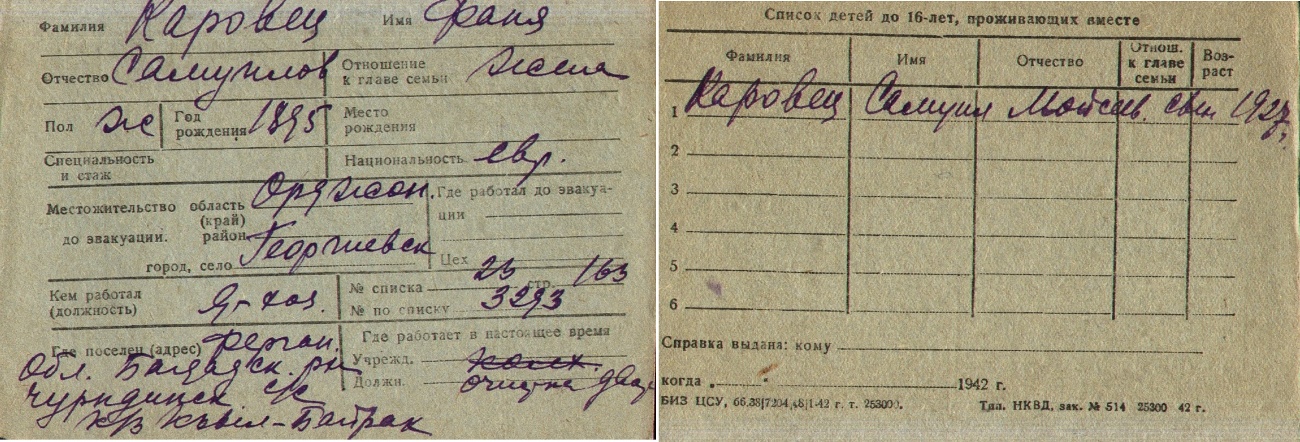 Фамилия Каровец Имя Фаня
Отчество Самуилов Отношение к главе семьи жена
Пол ж Год рождения 1895 Место рождения
Специальность и стаж Национальность евр.
Местожительство область (край) Орджон. Где работал до эвакуации
до эвакуации. район
город, село Георгиевск Цех
Кем работал (должность) д-хоз. № списка 23 стр. 163
№ по списку 3293
Где поселен (адрес) Ферган. Где работает в настоящее время
Обл. Багдадск. рн Учрежд. колх.
Чуриндинск с/с Должн.
к/з Кзыл-Байрак
Список детей до 16-лет, проживающих вместе
Фамилия Имя Отчество Отнош. к главе семьи Воз-раст
1 Каровец Самуил Мойсеев. сын 1927г.
2
3
4
5
6
Справка выдана: кому
когда „ “ 1942 г.
БИЗ ЦСУ, 66.38|7204,48|1-42 г. т. 253000. Тип. НКВД, зак. № 514 25300 42 г.